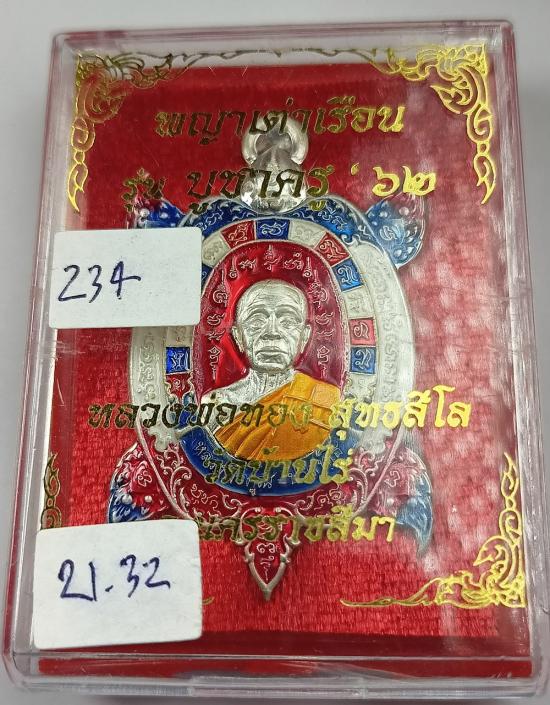 พญาเต่าเรือน
รุ่น บูชาครู ' ๖๒
234
หลวงพ่อทอง สุทธสีโล
วัดบ้านไร่
นครราชสีมา
21.32